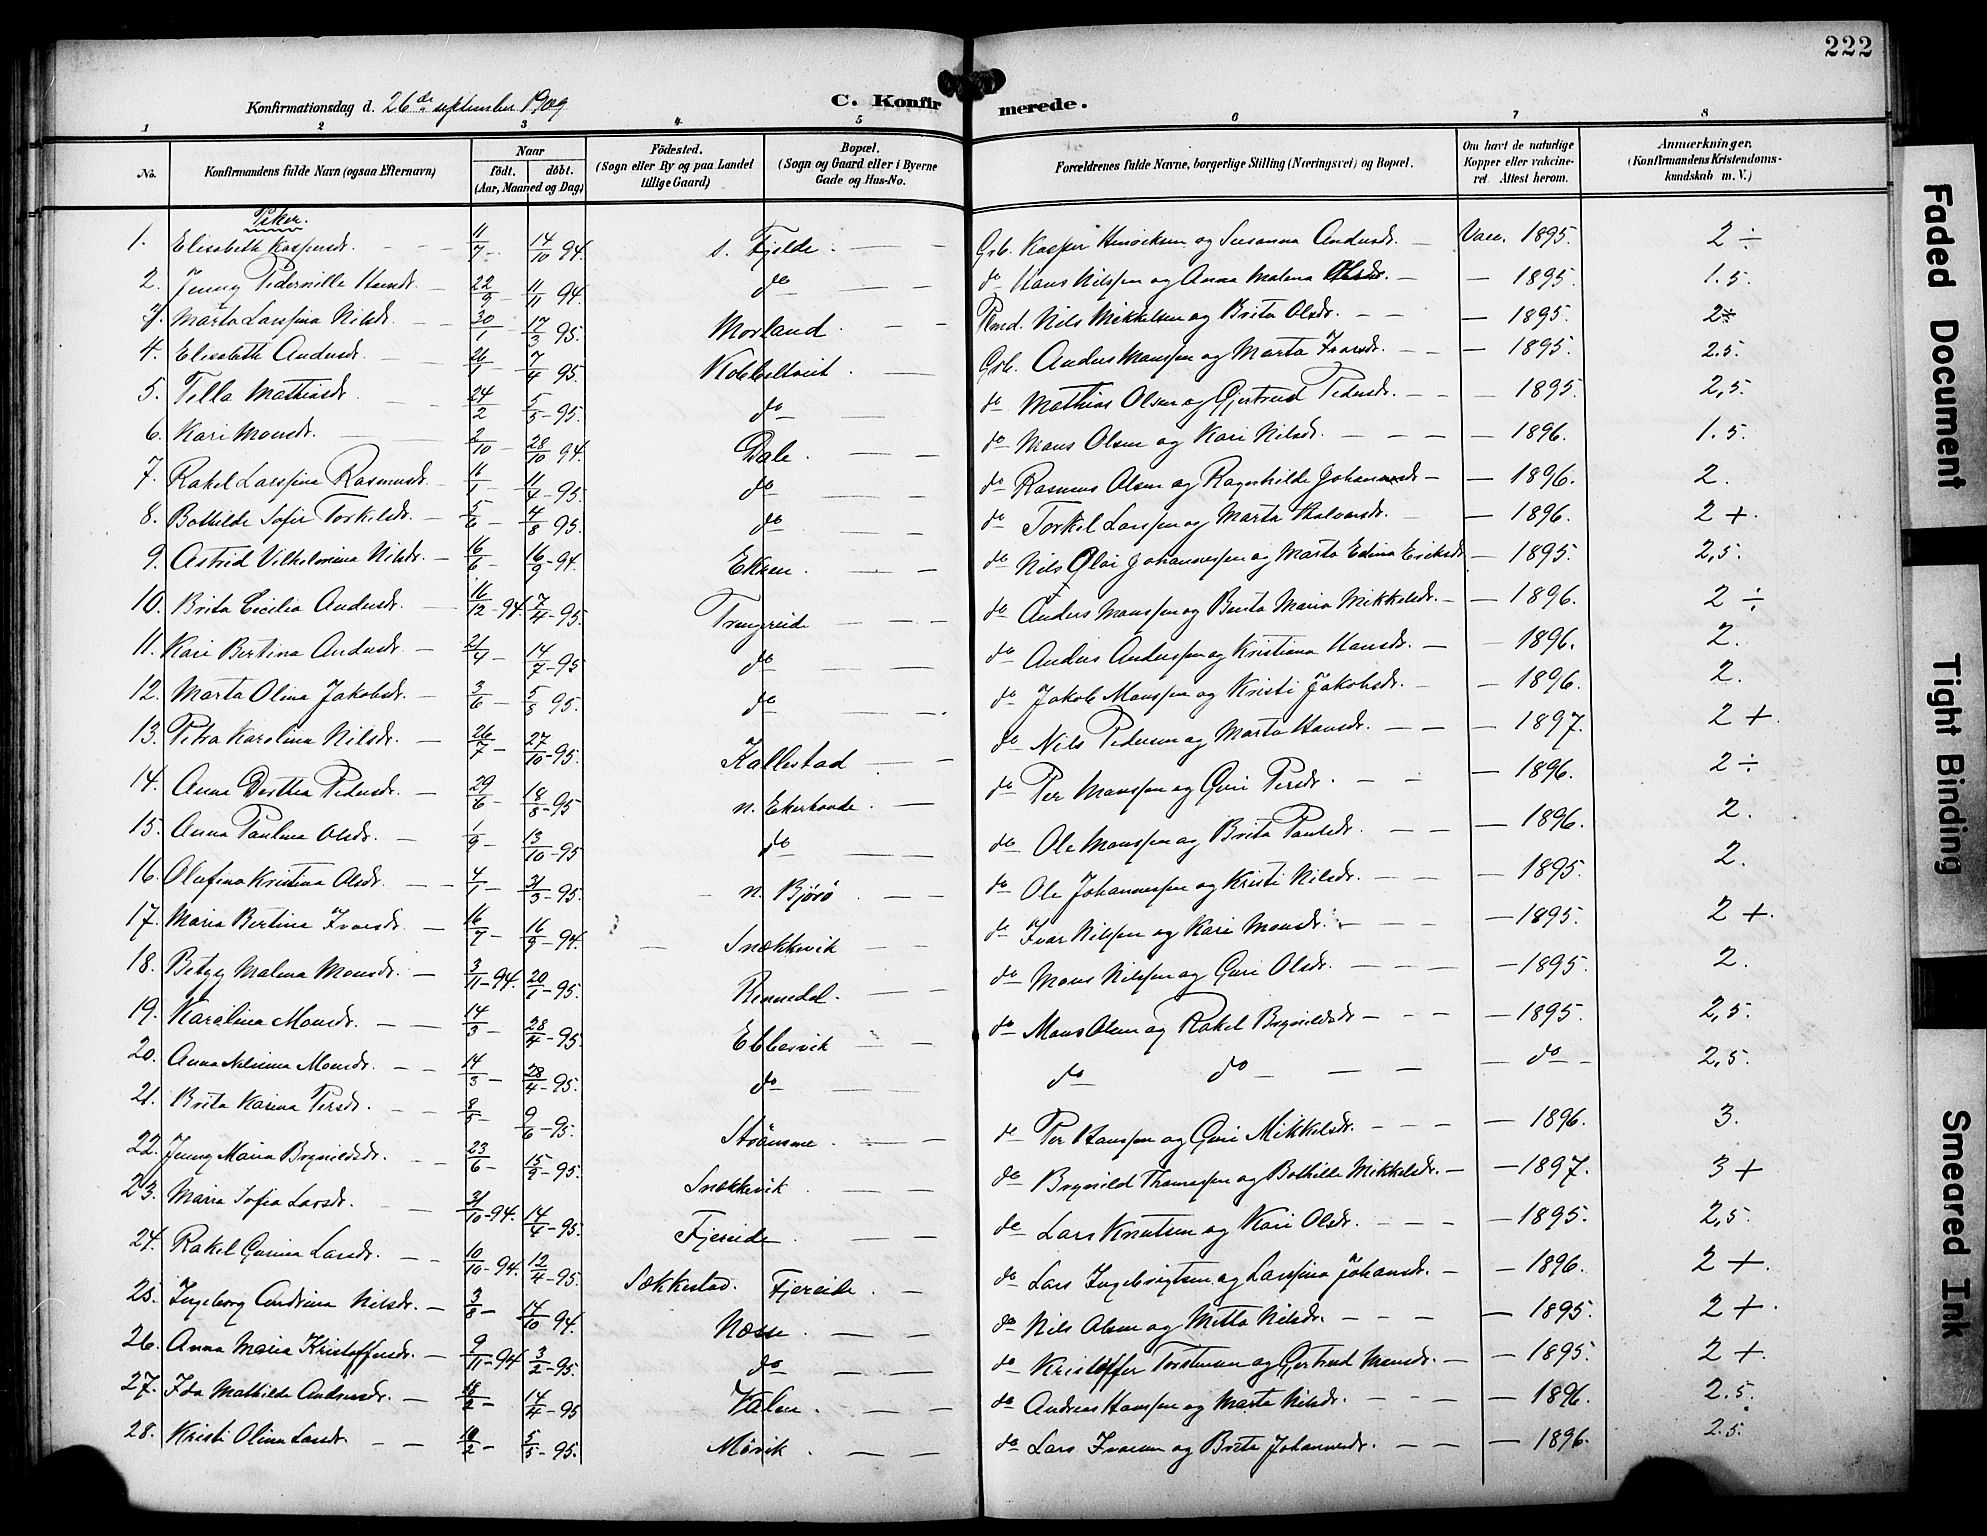 222
Konfirmationsdag d. 26de september 1909
C. Konfirmerede.
1 2 3 4 5 6 7 8
No. Konfirmandens fulde Navn (ogsaa Efternavn) Naar födt. döbt. (Aar, Maaned og Dag) Födested. (Sogn eller By og paa Landet tillige Gaard) Bopæl. (Sogn og Gaard eller i Byerne Gade og Hus-No. Forældrenes fulde Navne, borgerlige Stilling (Næringsvei) og Bopæl. Om havt de naturlige Kopper eller vakcineret. Attest herom. Anmærkninger. (Konfirmandens Kristendomskundskab m. V.)
Piker.
1. Elisabeth Kaspersdr. 11/7 – 14/10 94. s. Fjelde. Gsb. Kasper Henriksen og Susanna Andersdr. – Vacc. 1895. 2 ÷
2. Jenny Pedernille Hansdr. – 22/9 – 11/11 94. do do Hans Nilssen og Anna Malena Olsdr. – – 1895. 1.5.
3. Marta Larssina Nilsdr. 30/1 – 17/3 95. Morland. Nils Mikkelsen og Brita Olsdr. – – – 1895. 2
4. Elisabeth Andersdr. 26/1 – 7/4 95. Kobbeltveit. Gsb. Anders Monssen og Marta Ivarsdr. – – – 1895. 2.5.
5. Tilla Mathiasdr. 24/2 – 5/5 – 95. do do Mathias Olsen og Gjertrud Pedersdr. – – 1895. 2,5.
6. Kari Monsdr. 2/10 – 28/10 94. Dale. do Mons Olsen og Kari Nilsdr. – – – 1896. 1.5.
7. Rakel Larssina Rasmusdr. 16/1 – 11/4 – 95. do do Rasmus Olsen og Ragnhilde Johannesdr – – 1896. 2.
8. Bothilde Sofie Torkelsdr. – 5/6 – 4/8 95. do do Torkel Larssen og Marta Halvorsdr. – – 1896. 2 +
9. Astrid Vilhelmina Nilsdr. – 16/6 – 16/9 – 94. Ekren. do Nils Olai Johannessen og Marta Edina Eriksdr – 1895. 2,5.
10. Brita Cecilia Andersdr. – 16/12 – 94. 7/4 – 95. Trengereide do Anders Monssen og Berta Maria Mikkelsdr. – – 1896. 2 ÷
11. Kari Bertina Andersdr. – 21/4 – 14/7 – 95 do do Anders Anderssen og Kristiana Hansdr. – – 1896. 2.
12. Marta Olina Jakobsdr. – 3/6 – 5/8 95. do do Jakob Monssen og Kristi Jakobsdr. – – 1896. 2.
13. Petra Karolina Nilsdr. – 26/7 – 27/10 – 95. Kallestad do Nils Pedersen og Marta Hansdr. – – 1897. 2 +.
14. Anna Dorthea Pedersdr. – 29/6 – 18/8 – 95 n. Ekerhovde. do Per Monssen og Guri Persdr. – – – 1896. 2 ÷
15. Anna Paulina Olsdr. – 1/9 – 13/10 – 95 do do Ole Monssen og Brita Paulsdr. – – – 1896. 2.
16. Olufina Kristina Olsdr. – – 4/1 – 31/3 – 95. n. Bjorö do Ole Johannessen og Kristi Nilsdr. – – – 1895. 2.
17. Maria Bertina Ivarsdr. – 16/7 – 16/9 – 94. Snekkevik do Ivar Nilssen og Kari Monsdr. – – – 1895. 2 +.
18. Betzy Malena Monsdr. – 3/11 – 94. 20/1 – 95. Rennedal. do Mons Nilssen og Guri Olsdr. – – – – 1895. 2.
19. Karolina Monsdr. – – 14/3 – 28/4 – 95. Ebbesvik do Mons Olsen og Rakel Brynildsdr – – – – 1895. 2,5.
20. Anna Nelsina Monsdr. – – 14/3 – 28/4 – 95. do do do – – – do – 2,5.
21. Brita Karina Persdr. – – 8/5 – 9/6 – 95. Strömme. do Per Hanssen og Guri Mikkelsdr. – – – – 1896. 3.
22. Jenny Maria Brynildsdr. – 23/6 – 15/9 – 95. Snekkevik. do Brynild Thomassen og Bothilde Mikkelsdr. – – 1897. 3 +
23. Maria Sofia Larsdr. – – 31/10 – 94. 14/4 – 95. Fjereide do Lars Knutsen og Kari Olsdr. – – – – 1895. 2,5.
24. Rakel Gurina Larsdr. – – 10/10 – 94. 12/4 – 95. Sekkestad. Fjereide. do Lars Ingebrigtsen og Larssina Johansdr. – – 1896. 2 +.
25. Ingeborg Andrina Nilsdr. – 3/8 – 14/10 94. Nesse. do Nils Olsen og Metta Nilsdr. – – – – 1895. 2 +.
26. Anna Maria Kristoffersdr. – 9/11 – 94 3/2 – 95. do do Kristoffer Torstensen og Gjertrud Monsdr. – – 1895. 2 +.
27. Ida Mathilde Andreasdr. – 18/2 – 14/4 – 95 Valen. do Andreas Hanssen og Marta Nilsdr. – – – 1896. 2.5.
28. Kristi Olina Larsdr. – – 10/2 – 5/5 – 95. Movik. do Lars Ivarsen og Brita Johannesdr. – – – 1896. 2.5.
Faded Document
Tight Binding
Smeared Ink